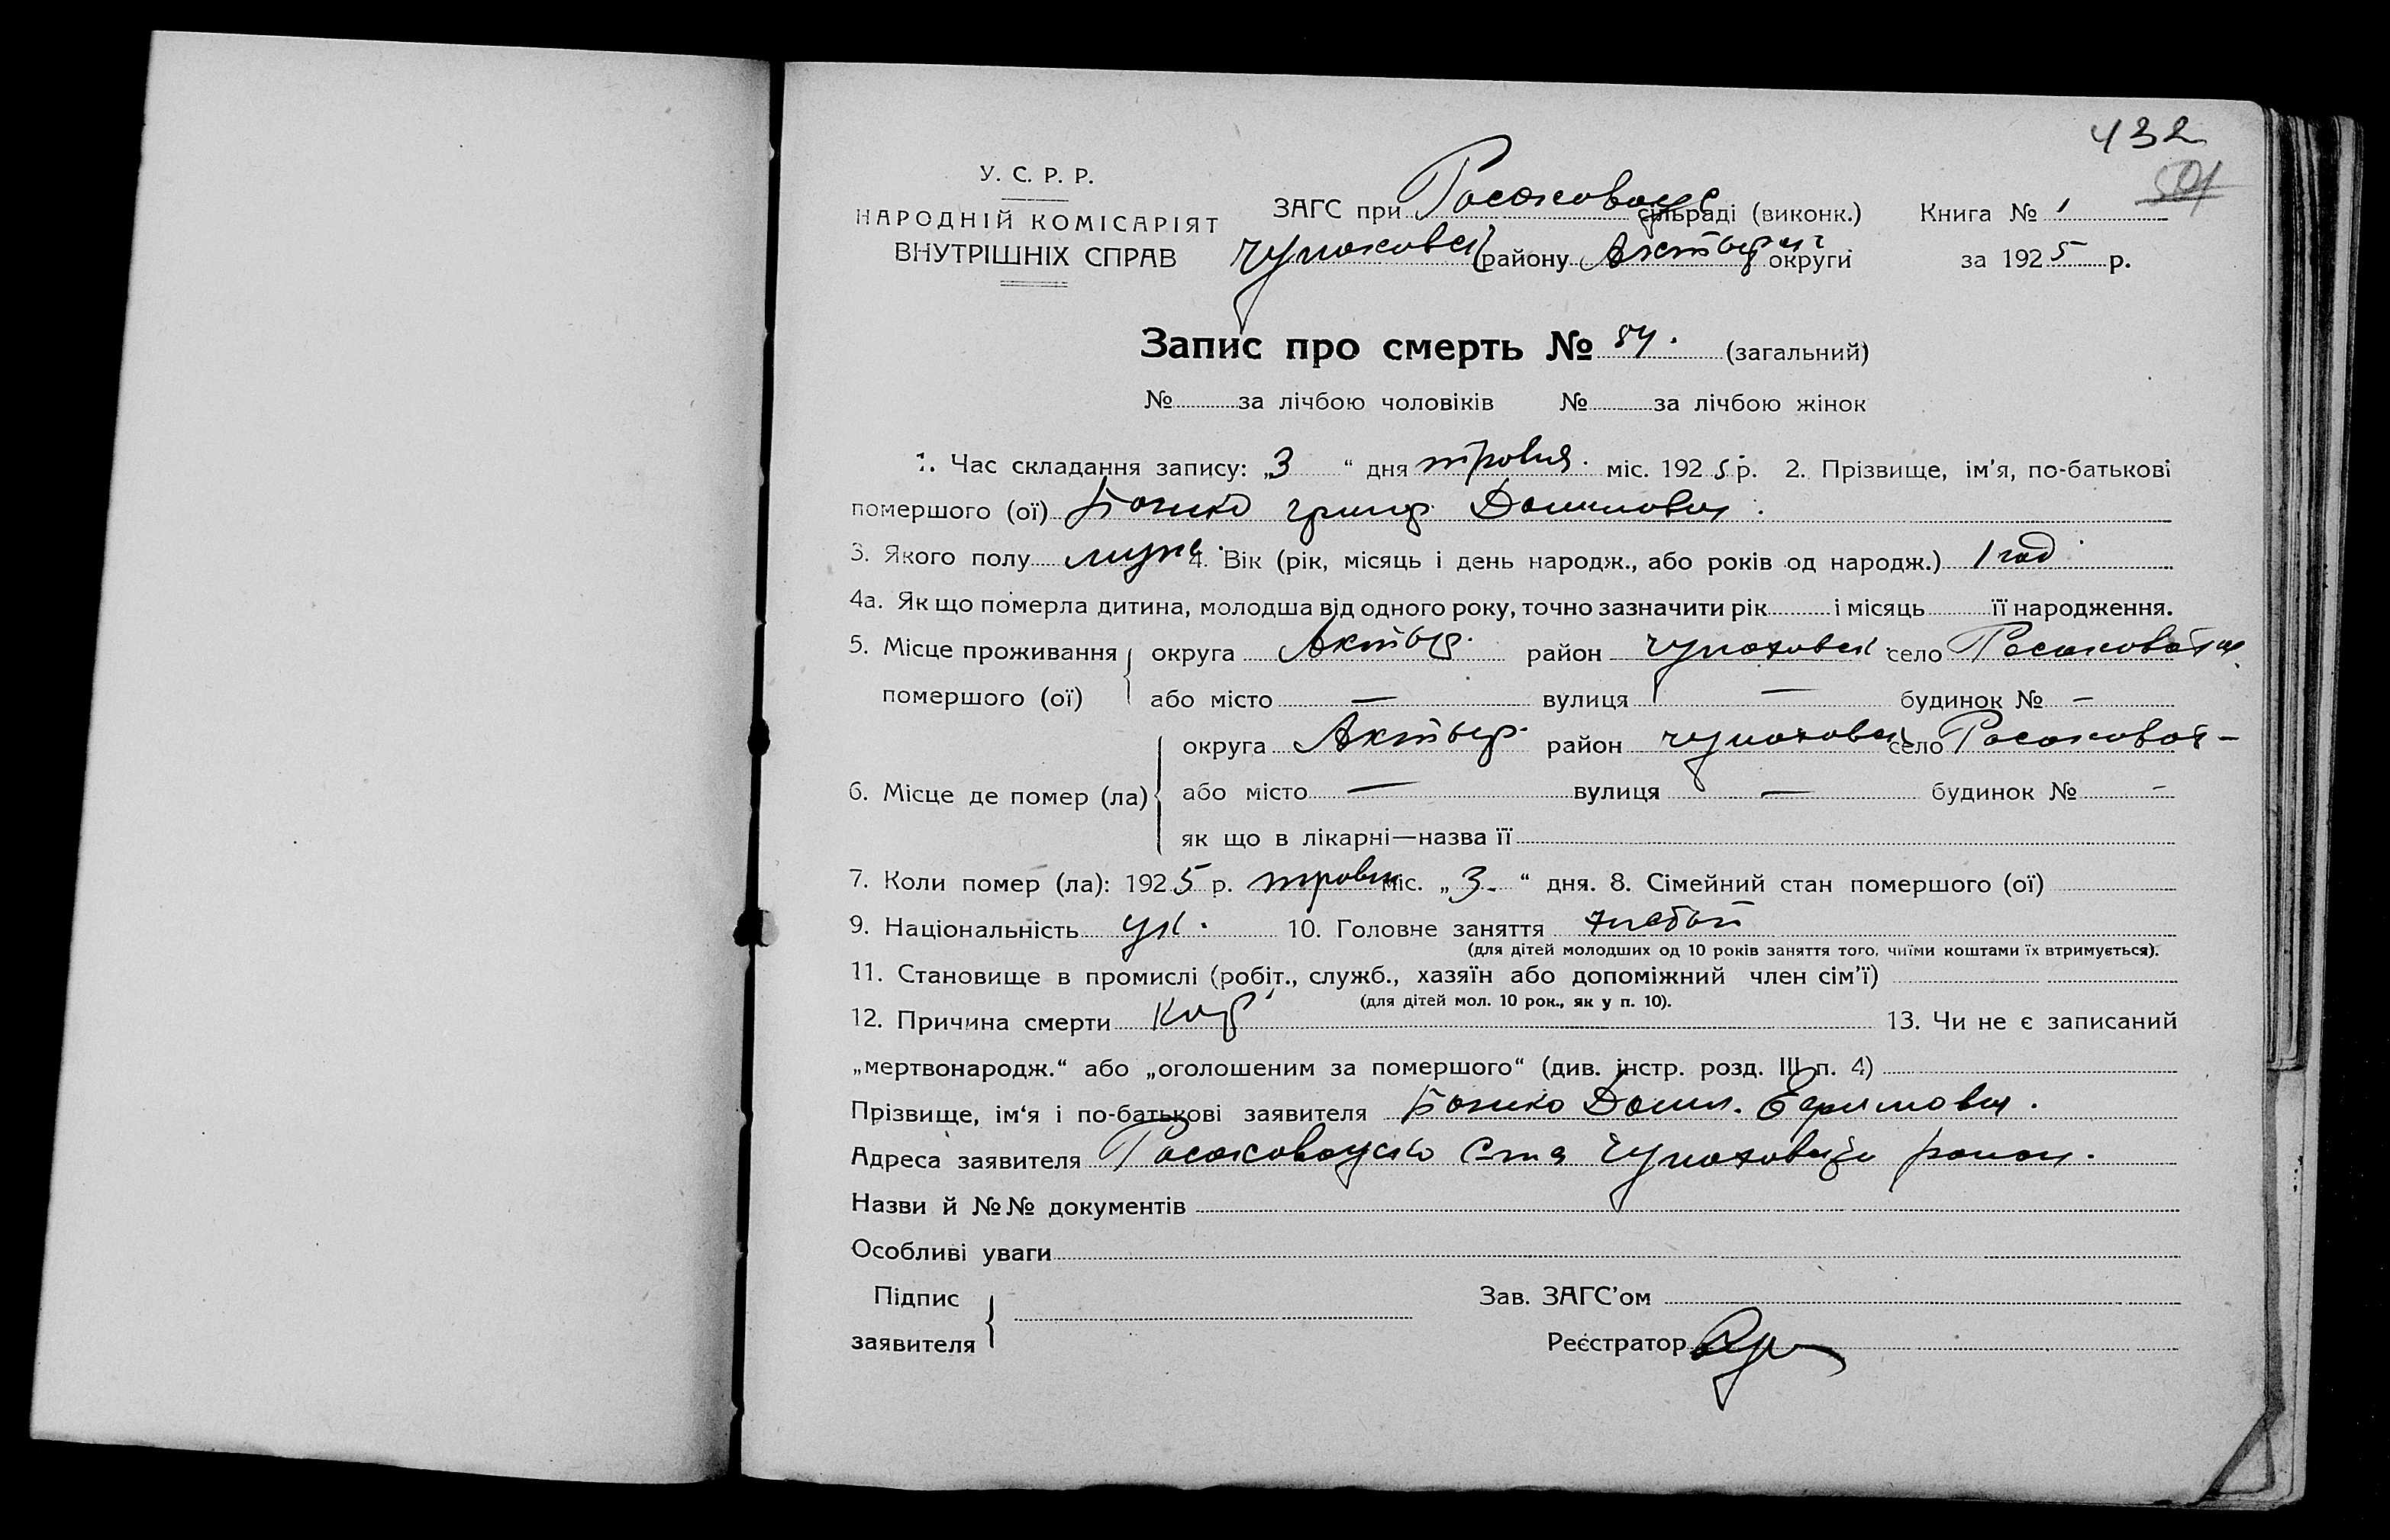 432
501
У. С. Р. Р.
НАРОДНІЙ КОМІСАРІЯТ
ВНУТРІШНІХ СПРАВ
ЗАГС при сільраді (виконк.) Книга № 1
району округи за 1925 р.
Запис про смерть № 84. (загальний)
№ за лічбою чоловіків № за лічбою жінок
1. Час складання запису: „3 “ дня травня міс. 1925 р. 2. Прізвище, ім'я, по-батькові
помершого (ої) Божко григ.
3. Якого полу муж. 4. Вік (рік, місяць і день народж., або років од народж.) 1 год
4а. Як що померла дитина, молодша від одного року, точно зазначити рік і місяць її народження.
5. Місце проживання округа Ахтыр. район село
помершого (ої) або місто — вулиця — будинок № —
округа Ахтыр. район село
6. Місце де помер (ла) або місто — вулиця — будинок № —
як що в лікарні—назва її
7. Коли помер (ла): 1925 р. травня міс. „ 3 “ дня. 8. Сімейний стан помершого (ої)
9. Національність ук. 10. Головне заняття
(для дітей молодших од 10 років заняття того, чиїми коштами їх втримується).
11. Становище в промислі (робіт., служб., хазяїн або допоміжний член сім'ї)
(для дітей мол. 10 рок., як у п. 10).
12. Причина смерти Кор 13. Чи не є записаний
„мертвонародж.“ або „оголошеним за помершого“ (див. інстр. розд. III п. 4)
Прізвище, ім'я і по-батькові заявителя Божко Ефимович.
Адреса заявителя район.
Назви й №№ документів
Особливі уваги
Підпис Зав. ЗАГС'ом
заявителя Реєстратор